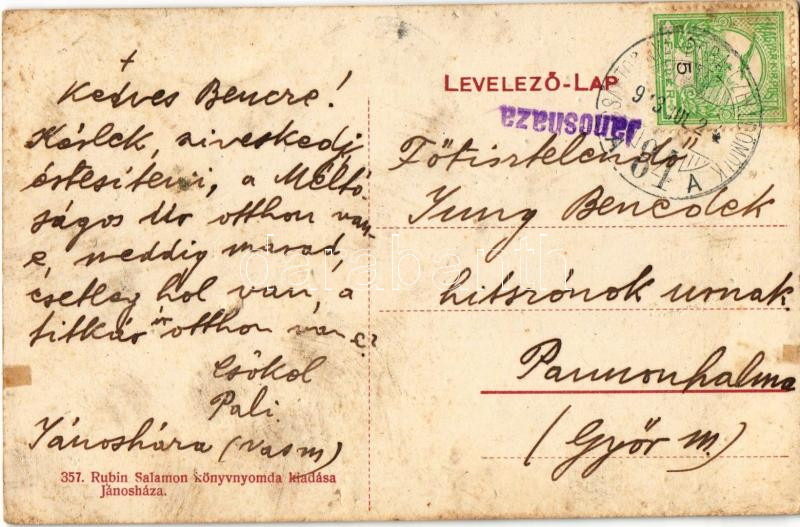 +
Kedves Bencze!
Kérlek, sziveskedj
értesíteni, a Méltó-
ságos Úr otthon van-
e, meddig marad,
esetleg hol van, a
titkár úr otthon van e?
Csókol
Pali
Jánosháza (Vasm)
357. Rubin Salamon könyvnyomda kiadása
Jánosháza.
LEVELEZŐ-LAP
Jánosháza
Főtisztelendő
Jung Benedek
hitszónok urnak
Pannonhalma
(Győr m.)
5
64
A
darabanth